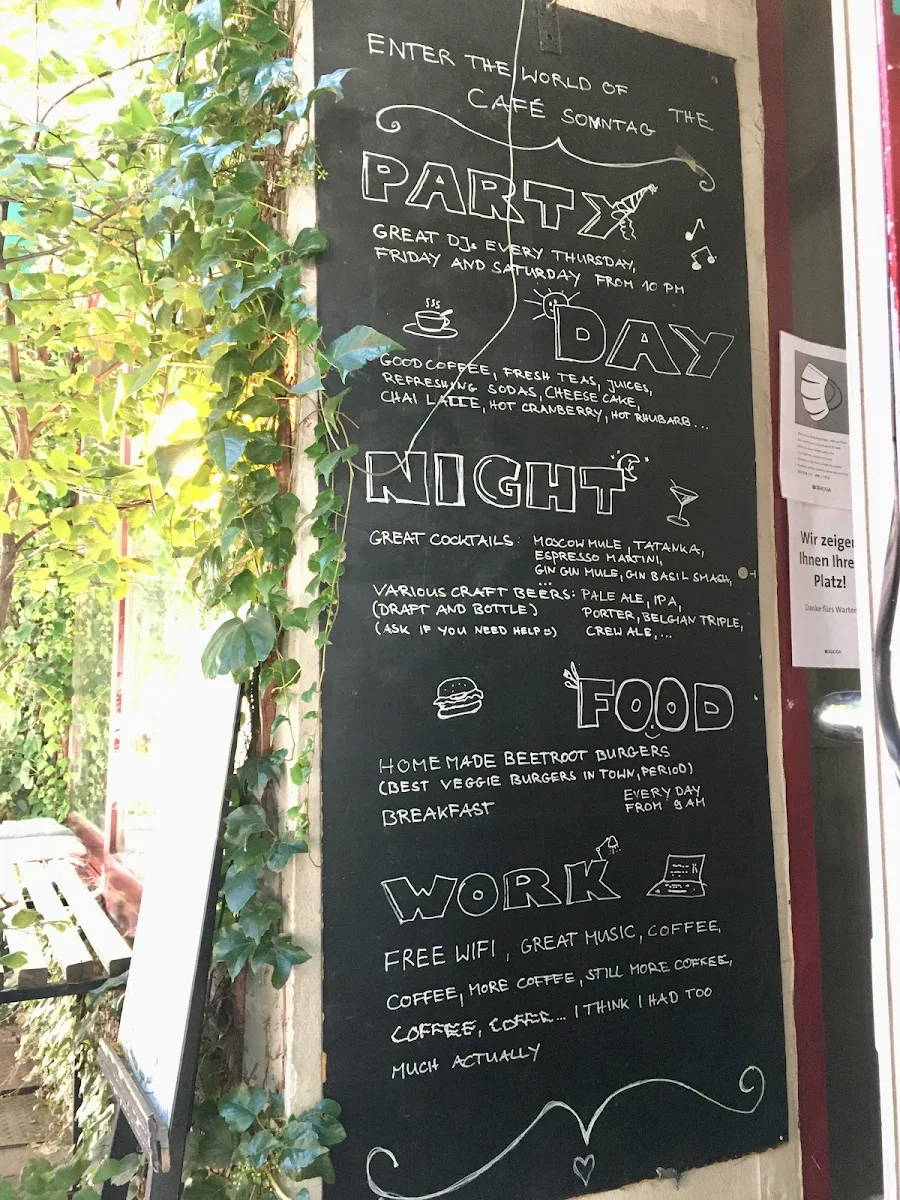 ENTER THE WORLD OF
CAFÉ SONNTAG THE
PARTY
GREAT DJs EVERY THURSDAY,
FRIDAY AND SATURDAY FROM 10 PM
DAY
GOOD COFFEE, FRESH TEAS, JUICES,
REFRESHING SODAS, CHEESE CAKE,
CHAI LATTE, HOT CRANBERRY, HOT RHUBARB...
NIGHT
GREAT COCKTAILS: MOSCOW MULE, TATANKA,
ESPRESSO MARTINI,
GIN GIN MULE, GIN BASIL SMASH,
...
VARIOUS CRAFT BEERS: PALE ALE, IPA,
(DRAFT AND BOTTLE) PORTER, BELGIAN TRIPLE,
(ASK IF YOU NEED HELP☺) CREW ALE,...
FOOD
HOMEMADE BEETROOT BURGERS
(BEST VEGGIE BURGERS IN TOWN, PERIOD)
BREAKFAST EVERY DAY
FROM 9 AM
WORK
FREE WIFI, GREAT MUSIC, COFFEE,
COFFEE, MORE COFFEE, STILL MORE COFFEE,
COFFEE, COFFEE... I THINK I HAD TOO
MUCH ACTUALLY
Wir zeigen
Ihnen Ihre
Platz!
Danke fürs Warten